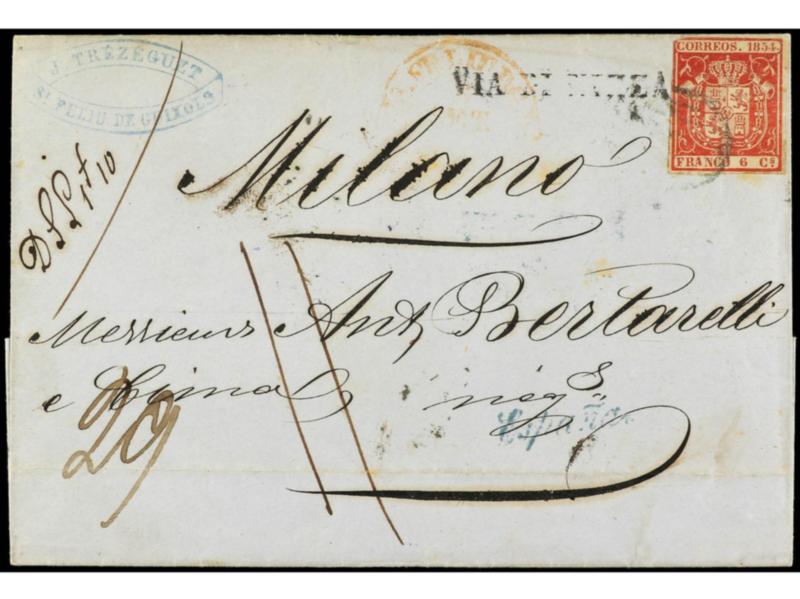 J. TRÉZÉGUET
Sn. FELIU DE GUIXOLS
VIA DI NIZZA
CORREOS. 1854.
FRANCO 6 Cs.
Milano
Messieurs Ant Bertarelli
e négs
España.
29